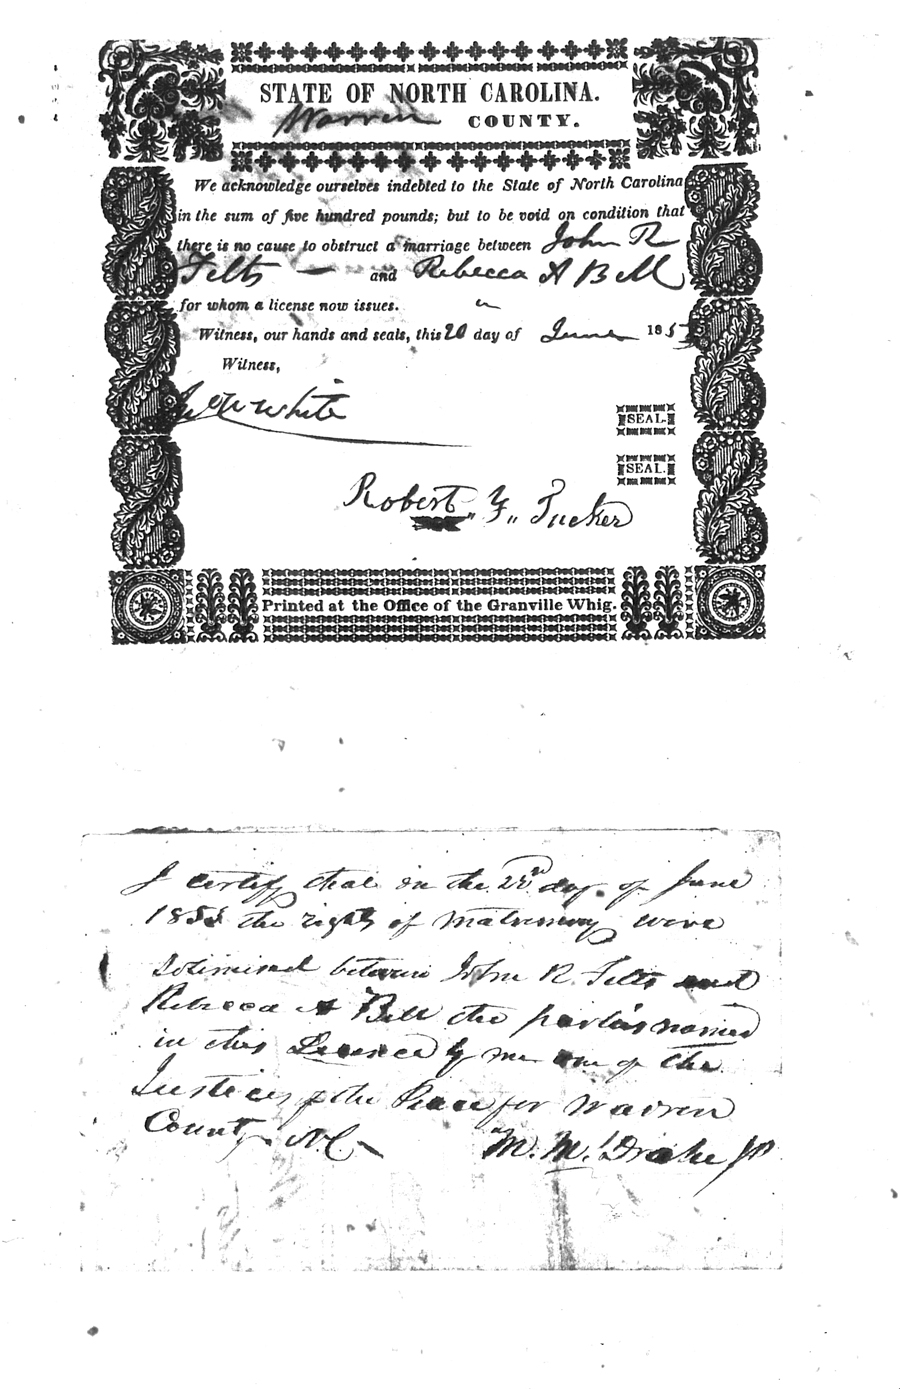 STATE OF NORTH CAROLINA.
Warren COUNTY.
We acknowledge ourselves indebted to the State of North Carolina
in the sum of five hundred pounds; but to be void on condition that
there is no cause to obstruct a marriage between John R
Felts — and Rebecca A Bell
for whom a license now issues.
Witness, our hands and seals, this 20 day of June 185
Witness,
White
SEAL.
SEAL.
Robert "Y" Tucker
Printed at the Office of the Granville Whig.
I certify that on the day of June
185 the rights of Matrimony were
Solemnised between John R. Felts and
Rebecca A Bell the parties named
in this License by me one of the
Justices of the Peace for Warren
County N.C
M. M. Drake JP